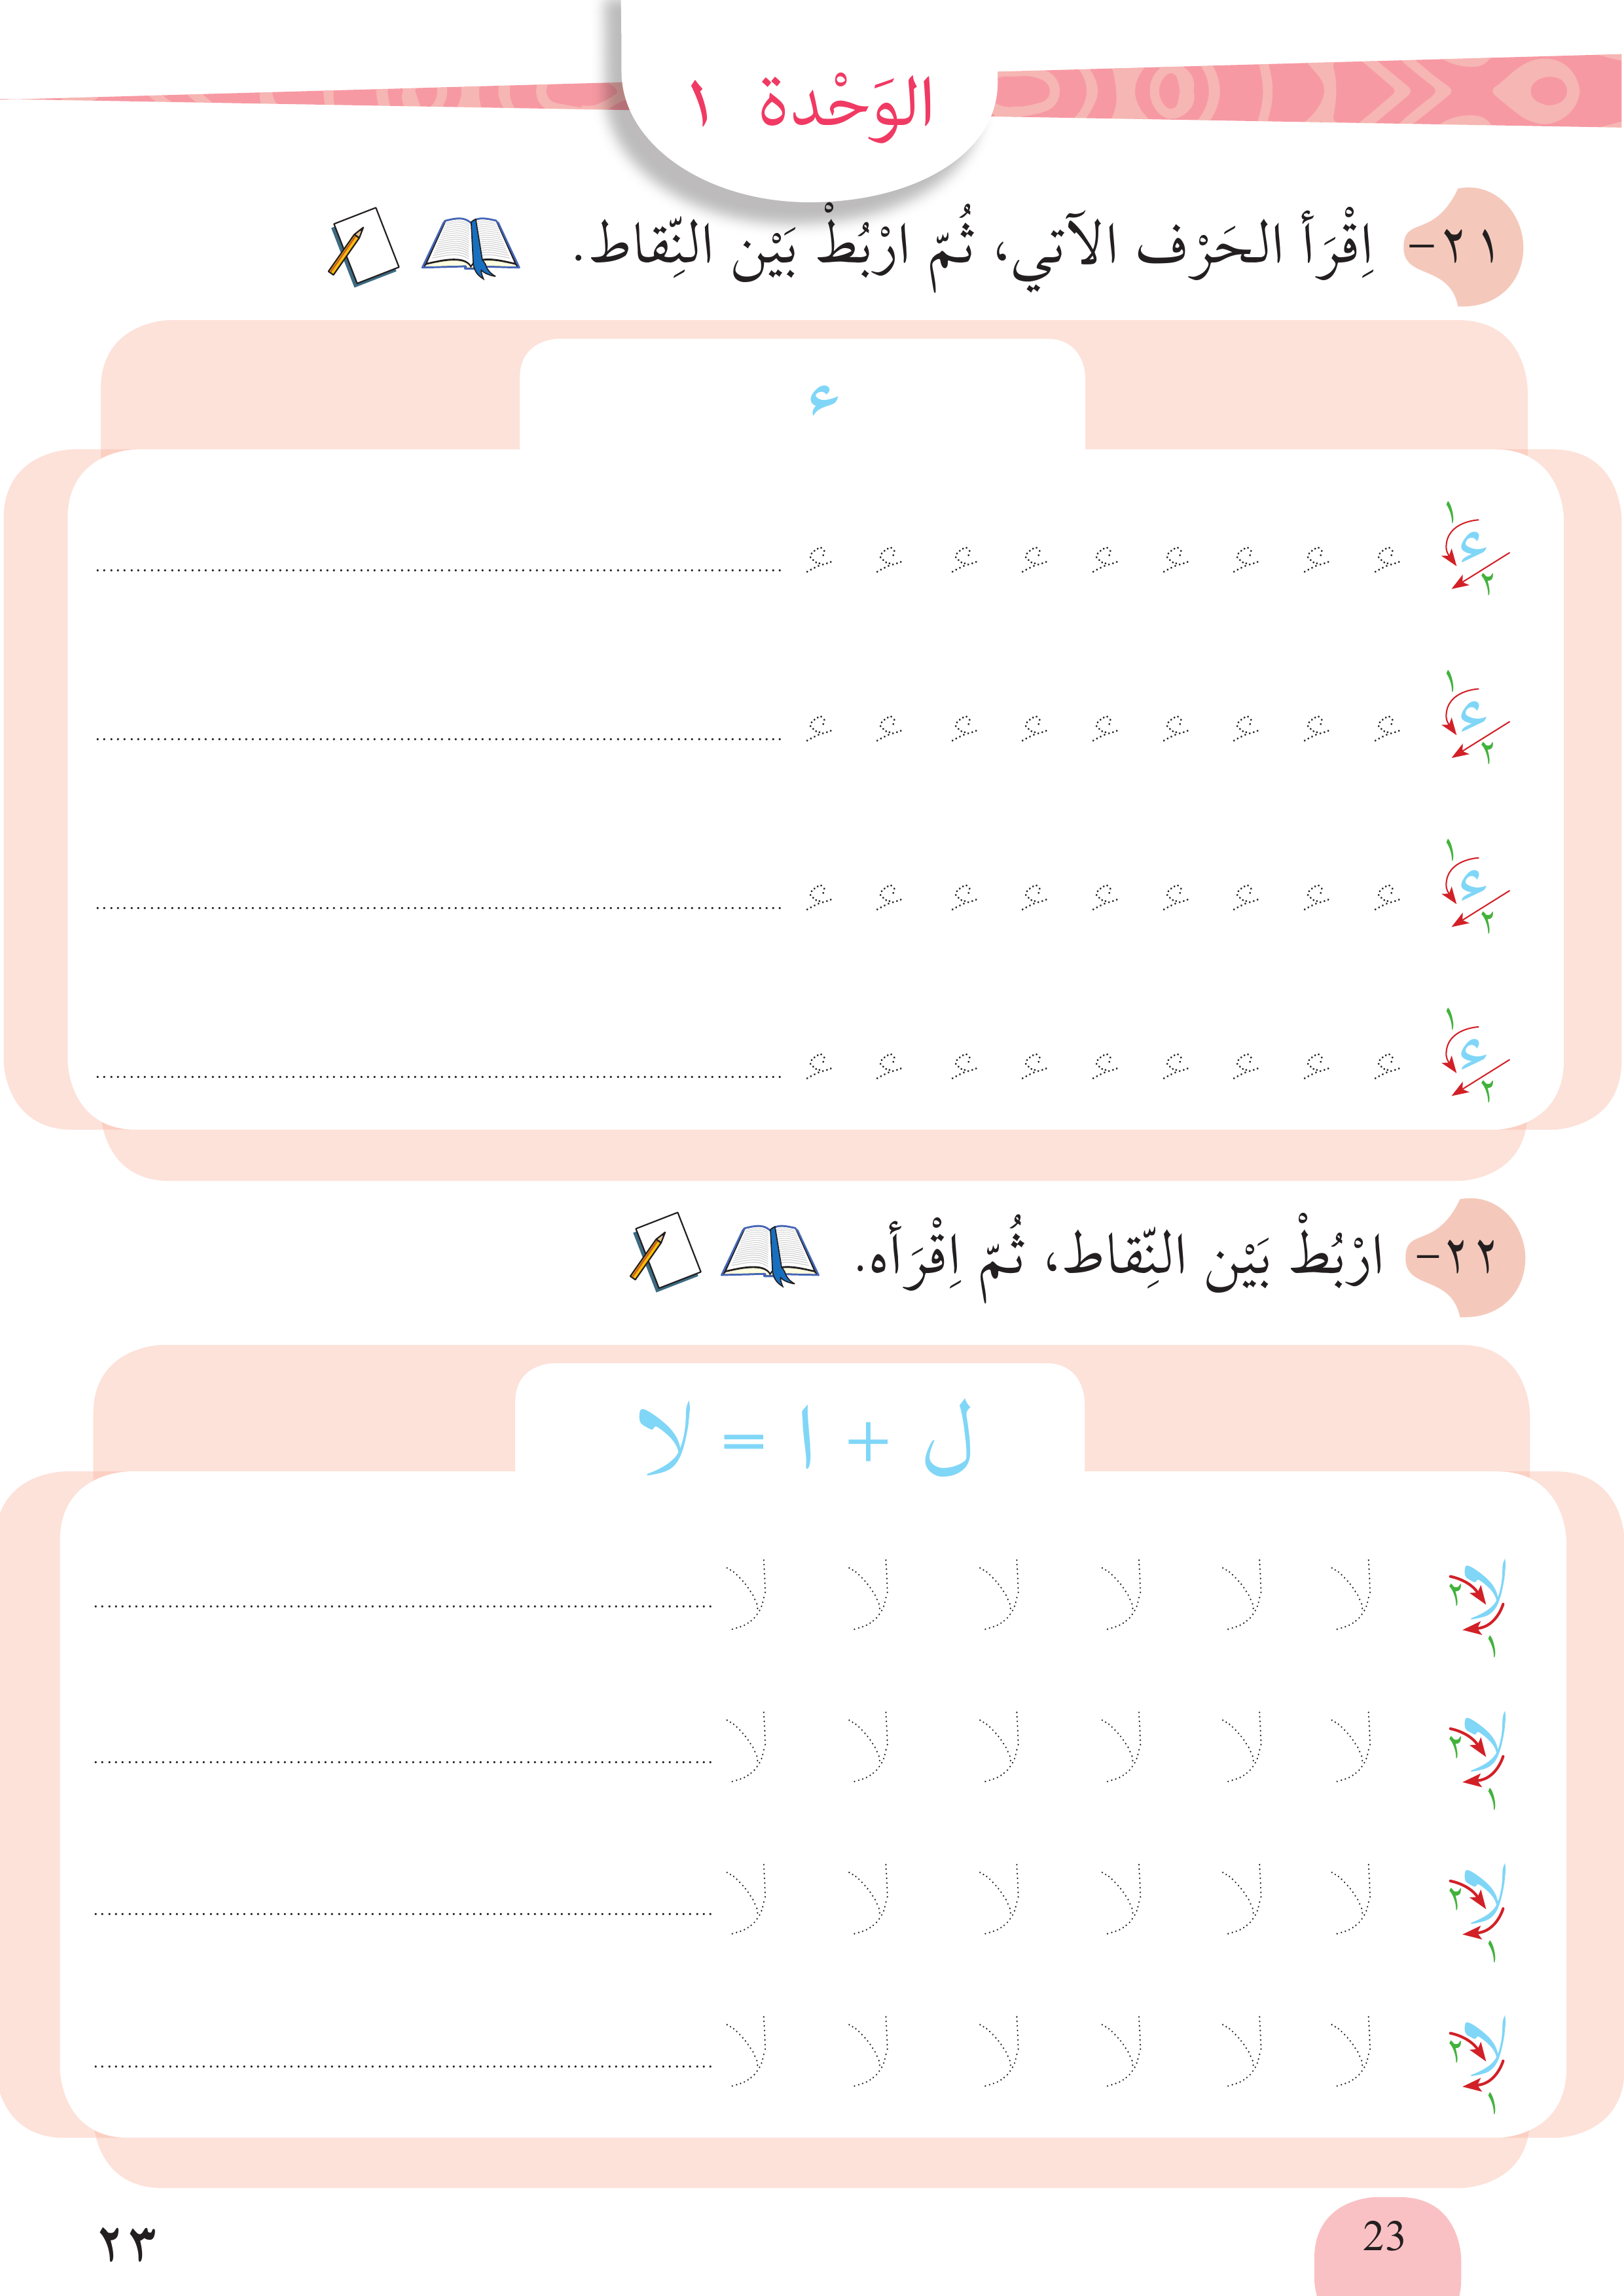 الوَحْدة ١
٢١- اِقْرَأ الحَرْف الآتي، ثُمّ ارْبُطْ بَيْن النِّقاط.
ء
١ ء ٢ ء ء ء ء ء ء ء ء ء
١ ء ٢ ء ء ء ء ء ء ء ء ء
١ ء ٢ ء ء ء ء ء ء ء ء ء
١ ء ٢ ء ء ء ء ء ء ء ء ء
٢٢- ارْبُطْ بَيْن النِّقاط، ثُمّ اِقْرَأه.
ل + ا = لا
لا ٢ ١ لا لا لا لا لا لا
لا ٢ ١ لا لا لا لا لا لا
لا ٢ ١ لا لا لا لا لا لا
لا ٢ ١ لا لا لا لا لا لا
23
٢٣